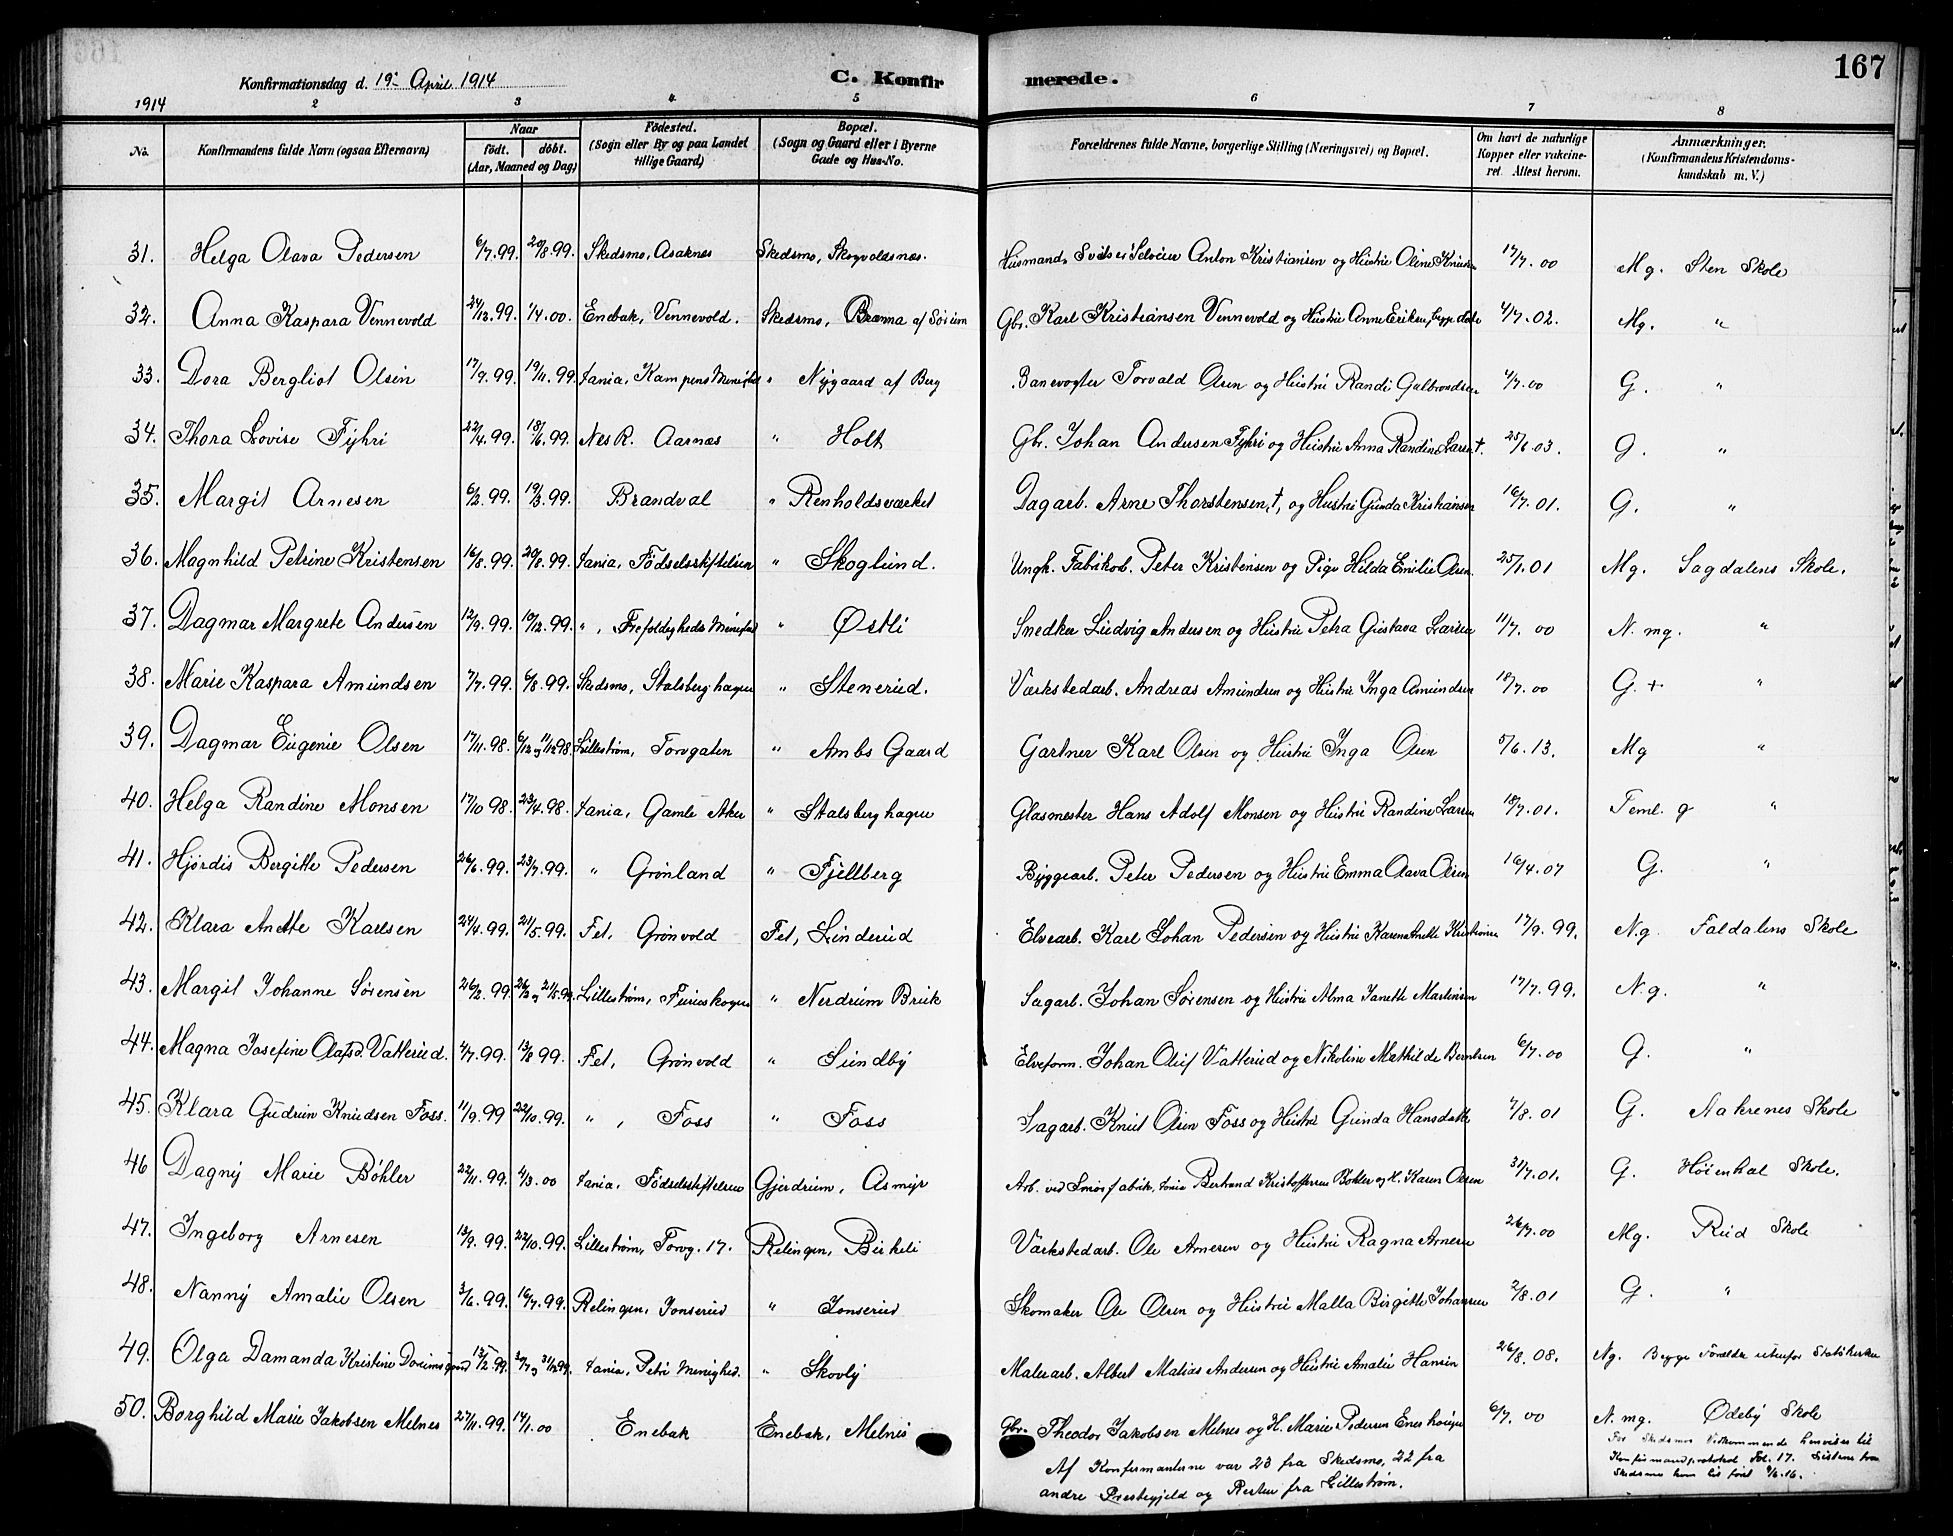 167
Konfirmationsdag d. 19de April 1914
C. Konfirmerede.
1914 2 3 4 5 6 7 8
No. Konfirmandens fulde Navn (ogsaa Efternavn) Naar født. døbt. (Aar, Maaned og Dag) Fødested. (Sogn eller By og paa Landet tillige Gaard) Bopæl. (Sogn og Gaard eller i Byerne Gade og Hus-No. Forældrenes fulde Navne, borgerlige Stilling (Næringsvei) og Bopæl. Om havt de naturlige Kopper eller vakcineret. Attest herom. Anmærkninger. (Konfirmandens Kristendomskundskab m. V.)
31. Helga Olava Pedersen 6/7.99. 20/8.99. Skedsmo, Asaknes Skedsmo, Skogvoldsnes. Husmands Anton Kristiansen og Hustru Oline 17/7.00 Mg. Sten Skole
32. Anna Kaspara Vennevold 24/12.99. 1/4.00. Enebak, Vennevold. Skedsmo, Brænna af Sørum Gbr. Karl Kristiansen Vennevold og Hustru Anne 4/7.02. Mg. "
33. Dora Bergliot Olsen 17/9.99. 19/11.99. Kania, Kampens Menighed " Nygaard af Berg Banevogter Torvald Olsen og Hustru Randi Gulbrandsen 4/7.00 G. "
34. Thora Lovise Fyhri 22/4.99. 18/6.99. Nes R. Aarnæs " Holt Gbr. Johan Andersen Fyhri og Hustru Anna Randine Larsen †. 25/6.03. G. "
35. Margit Arnesen 6/2.99. 19/3.99. Brandval " Renholdsværket Dagarb. Arne Thorstensen, †, og Hustru Gunda Kristiansen 16/7.01. G. "
36. Magnhild Petrine Kristensen 16/8.99. 20/8.99. Kania, Fødselsstiftelsen " Skoglund. Ungk. Fabrikarb. Peter Kristensen og Pige Hilda Emilie Olsen. 25/1.01 Mg. Sagdalens Skole.
37. Dagmar Margrete Andersen 12/9.99. 10/12.99. ", Trefoldigheds Menighed " Østli Snedker Ludvig Andersen og Hustru Petra Gustava Larsen 11/7.00 N.mg. "
38. Marie Kaspara Amundsen 7/7.99. 6/8.99. Skedsmo, Stalsberghagen " Stenerud. Værkstedarb. Andreas Amundsen og Hustru Inga Amundsen 18/7.00 G. + "
39. Dagmar Eugenie Olsen 17/11.98. 6/12 og 11/12 98. Lillestrøm, Torvgaten " Ambs Gaard Gartner Karl Olsen og Hustru Inga Olsen 5/6.13. Mg "
40. Helga Randine Monsen 17/10 98. 23/4.98. Kania, Gamle Aker " Stalsberghagen Glasmester Hans Adolf Monsen og Hustru Randine Larsen 18/7.01. Teml. g "
41. Hjørdis Bergitte Pedersen 26/6.99. 23/7.99. " Grønland " Fjellberg Byggearb. Peter Pedersen og Hustru Emma Olava Olsen 16/4.07 G. "
42. Klara Anette Karlsen 24/4.99. 21/5.99. Fet, Grønvold Fet, Linderud Elvearb. Karl Johan Pedersen og Hustru Karen Anette Kristiansen 17/9.99. N.g. Faldalens Skole
43. Margit Johanne Sørensen 26/2.99. 26/2 og 21/5.99. Lillestrøm, Furuskogen " Nerdrum Bruk Sagarb. Johan Sørensen og Hustru Alma Janette Martinsen 17/7.99. N.g. "
44. Magna Josefine Olafsd. Vatterud. 4/7.99. 13/8 99. Fet, Grønvold " Sundby Elveform. Johan Oluf Vatterud og Nikoline Mathilde Berntsen 6/7.00 G. "
45. Klara Gudrun Knudsen Foss. 11/9.99 22/10.99. ", Foss " Foss Sagarb. Knut Olsen Foss og Hustru Gunda Hansdatter 7/8.01 G. Aakrenes Skole
46 Dagny Marie Bøhler 22/11.99. 4/3.00 Kania, Fødselsstiftelsen Gjerdrum, Asmyr Arb. ved Smørfabrik, Kania Bertrand Kristoffersen Bøhler og H. Karen Olsen 31/7.01. G. Høienhal Skole.
47. Ingeborg Arnesen 13/9.99. 22/10.99. Lillestrøm, Torvg. 17. Relingen, Birkeli Værkstedarb. Ole Arnesen og Hustru Ragna Arnesen 26/7.00 Mg. Rud Skole
48. Nanny Amalie Olsen 3/6.99. 16/7.99. Relingen, Tonserud " Tonserud Skomaker Ole Olsen og Hustru Malla Birgitte Johansen 2/8.01 G. "
49. Olga Damanda Kristine 13/2.99. Kania, Petri Menighed. " Skovly Malerarb. Albert Matias Andersen og Hustru Amalie Hansen 26/8.08. Ng. Begge Forældre utenfor Statskirken
50. Borghild Marie Jakobsen Melnes 27/11.99. 14/1.00 Enebak Enebak, Melnes Gbr. Theodor Jakobsen Melnes og H. Marie Pedersen 6/7.00 N.mg. Ødeby Skole
For Skedsmos Vedkommende henvises til
Konfirmandprotokol Fol. 17.
Skedsmo
Af Konfirmanterne var 23 fra Skedsmo, 22 fra
andre Prestegjeld og Resten fra Lillestrøm.